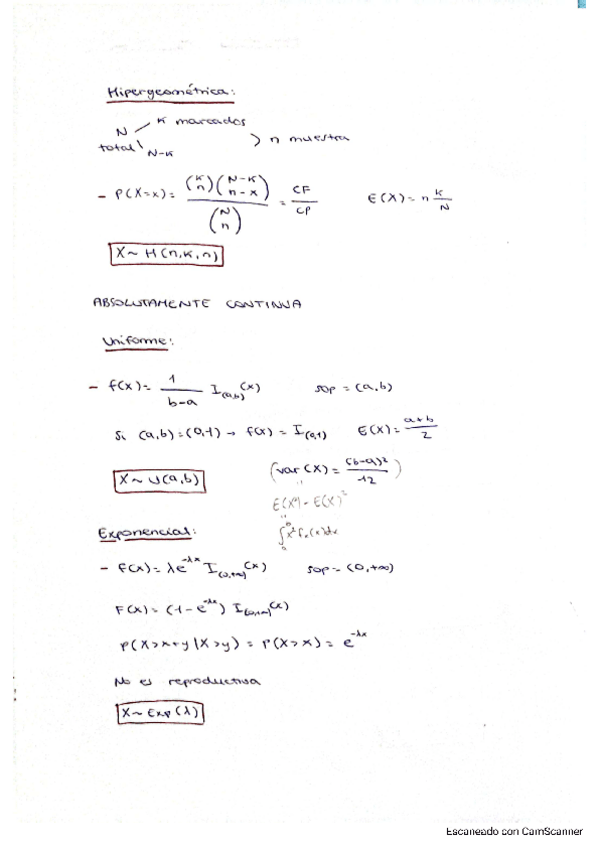 Hipergeométrica:
N K marcados
total N-K > n muestra
- P(X=x) = (K n)(N-K n-x) / (N n) = CF/CP E(X) = n K/N
X ~ H(n,K,n)
ABSOLUTAMENTE CONTINUA
Uniforme:
- f(x) = 1/(b-a) I(a,b)(x) sop = (a,b)
Si (a,b)=(0,1) → f(x) = I(0,1) E(X) = (a+b)/2
X ~ U(a,b) (var(X) = (b-a)²/12)
"
E(X²) - E(X)²
"
Exponencial:
- f(x) = λe^-λx I(0,+∞)(x) sop = (0,+∞)
F(x) = (1-e^-λx) I(0,+∞)(x)
P(X>x+y|X>y) = P(X>x) = e^-λx
No es reproductiva
X ~ Exp(λ)
Escaneado con CamScanner